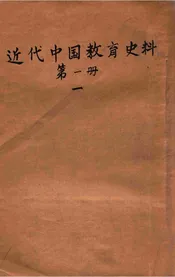 近代中国教育史料
第一册
一